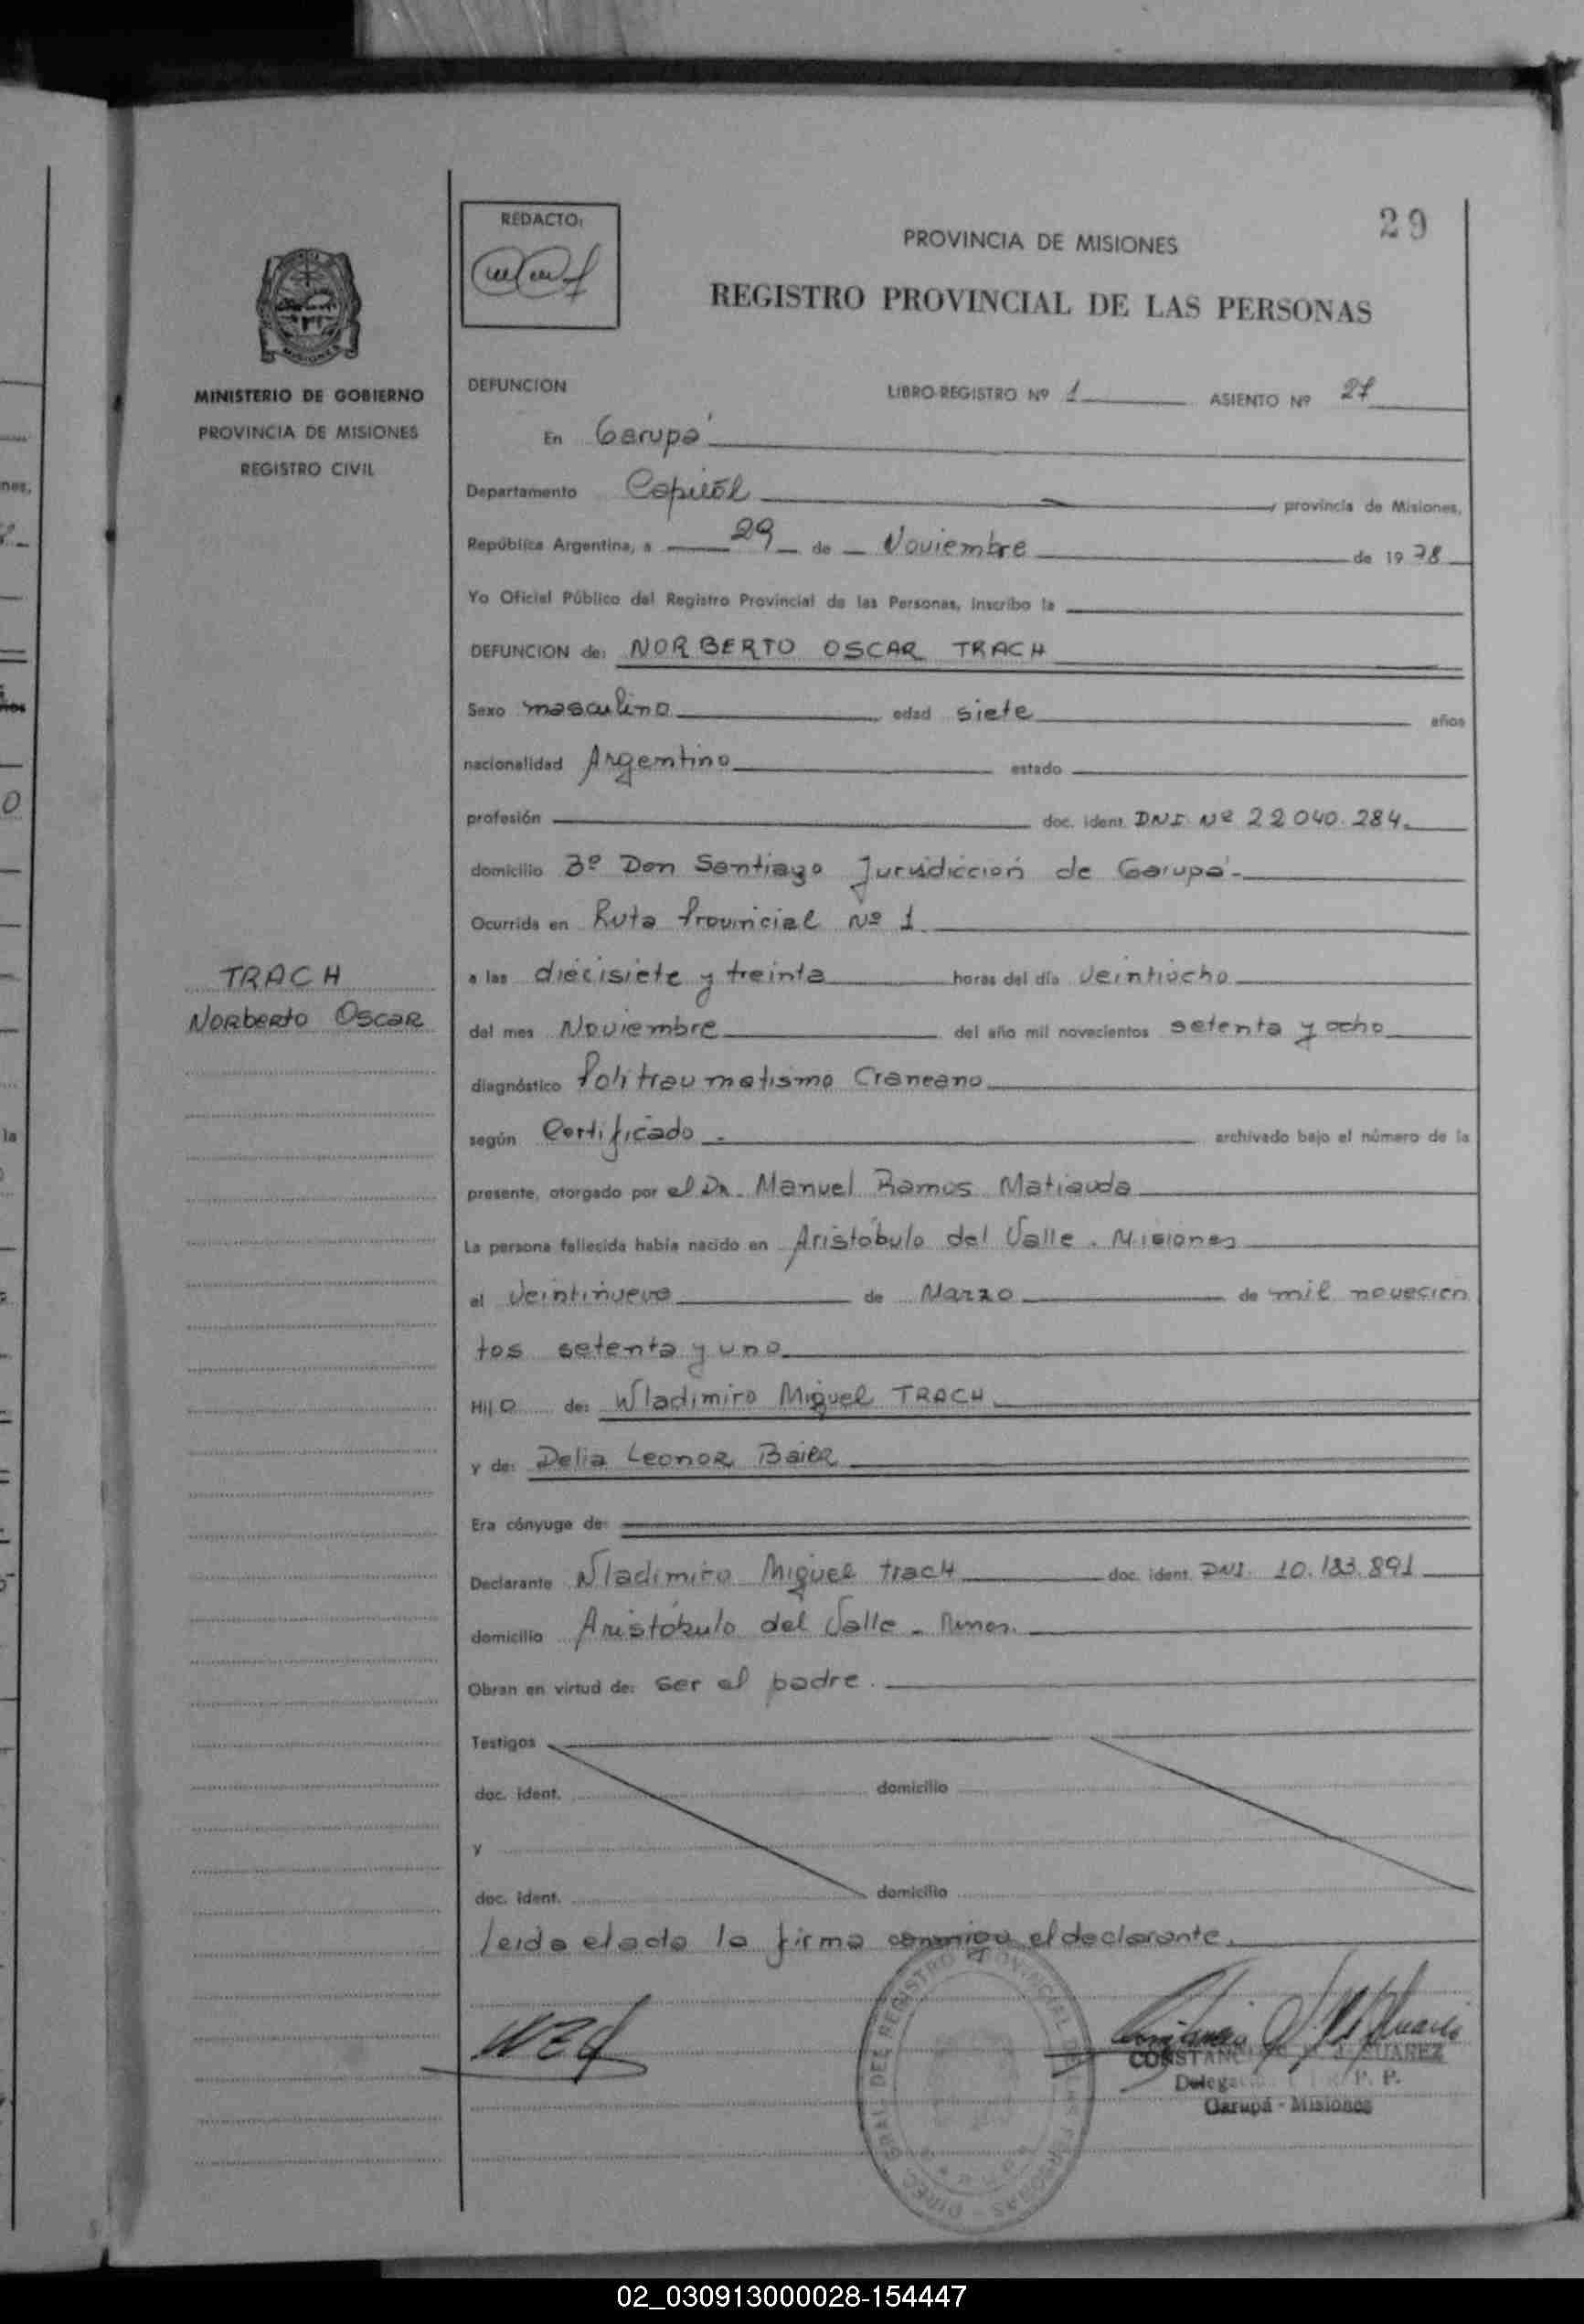 29
REDACTO:
PROVINCIA DE MISIONES
REGISTRO PROVINCIAL DE LAS PERSONAS
MISIONES
MINISTERIO DE GOBIERNO
PROVINCIA DE MISIONES
REGISTRO CIVIL
DEFUNCION LIBRO-REGISTRO Nº 1 ASIENTO Nº 27
En Garupá
Departamento Capital, provincia de Misiones,
República Argentina, a 29 de Noviembre de 1978
Yo Oficial Público del Registro Provincial de las Personas, inscribo la
DEFUNCION de: NORBERTO OSCAR TRACH
Sexo masculino edad siete años
nacionalidad Argentino estado
profesión doc. ident. DNI. Nº 22 040.284.
domicilio Bº Don Santiago Jurisdicción de Garupá-
Ocurrida en Ruta Provincial Nº 1
TRACH
Norberto Oscar
a las diecisiete y treinta horas del día veintiocho
del mes Noviembre del año mil novecientos setenta y ocho
diagnóstico Politraumatismo Craneano
según Certificado archivado bajo el número de la
presente, otorgado por el Dr. Manuel Ramos Matiauda
La persona fallecida había nacido en Aristóbulo del Valle. Misiones
el veintinueve de Marzo de mil novecien
tos setenta y uno
Hijo de: Wladimiro Miguel TRACH
y de: Delia Leonor Baier
Era cónyuge de:
Declarante Wladimiro Miguel trach doc. ident. DNI. 10.183.891
domicilio Aristóbulo del Valle - Mnes.
Obran en virtud de: ser el padre.
Testigos
doc. ident. domicilio
y
doc. ident. domicilio
leida el acta la firma conmigo el declarante.
DIREC. GRAL. DEL REGISTRO PROVINCIAL DE LAS PERSONAS
SUAREZ
Garupá - Misiones
02_030913000028-154447